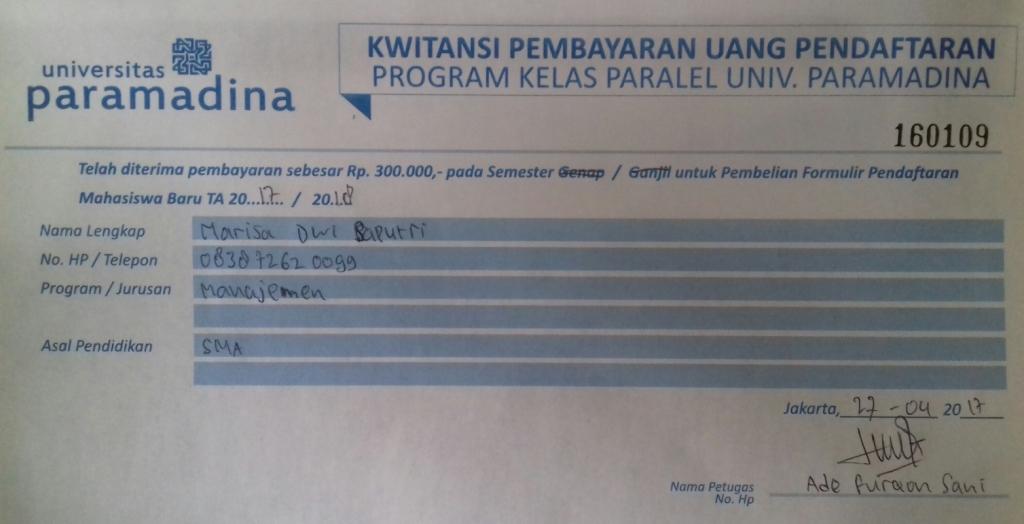 universitas
paramadina
KWITANSI PEMBAYARAN UANG PENDAFTARAN
PROGRAM KELAS PARALEL UNIV. PARAMADINA
160109
Telah diterima pembayaran sebesar Rp. 300.000,- pada Semester Genap / Ganjil untuk Pembelian Formulir Pendaftaran
Mahasiswa Baru TA 20...17... / 20.18
Nama Lengkap Marisa Dwi Saputri
No. HP / Telepon 083872620099
Program / Jurusan Manajemen
Asal Pendidikan SMA
Jakarta, 27 - 04 2017
Nama Petugas Ade Sani
No. Hp